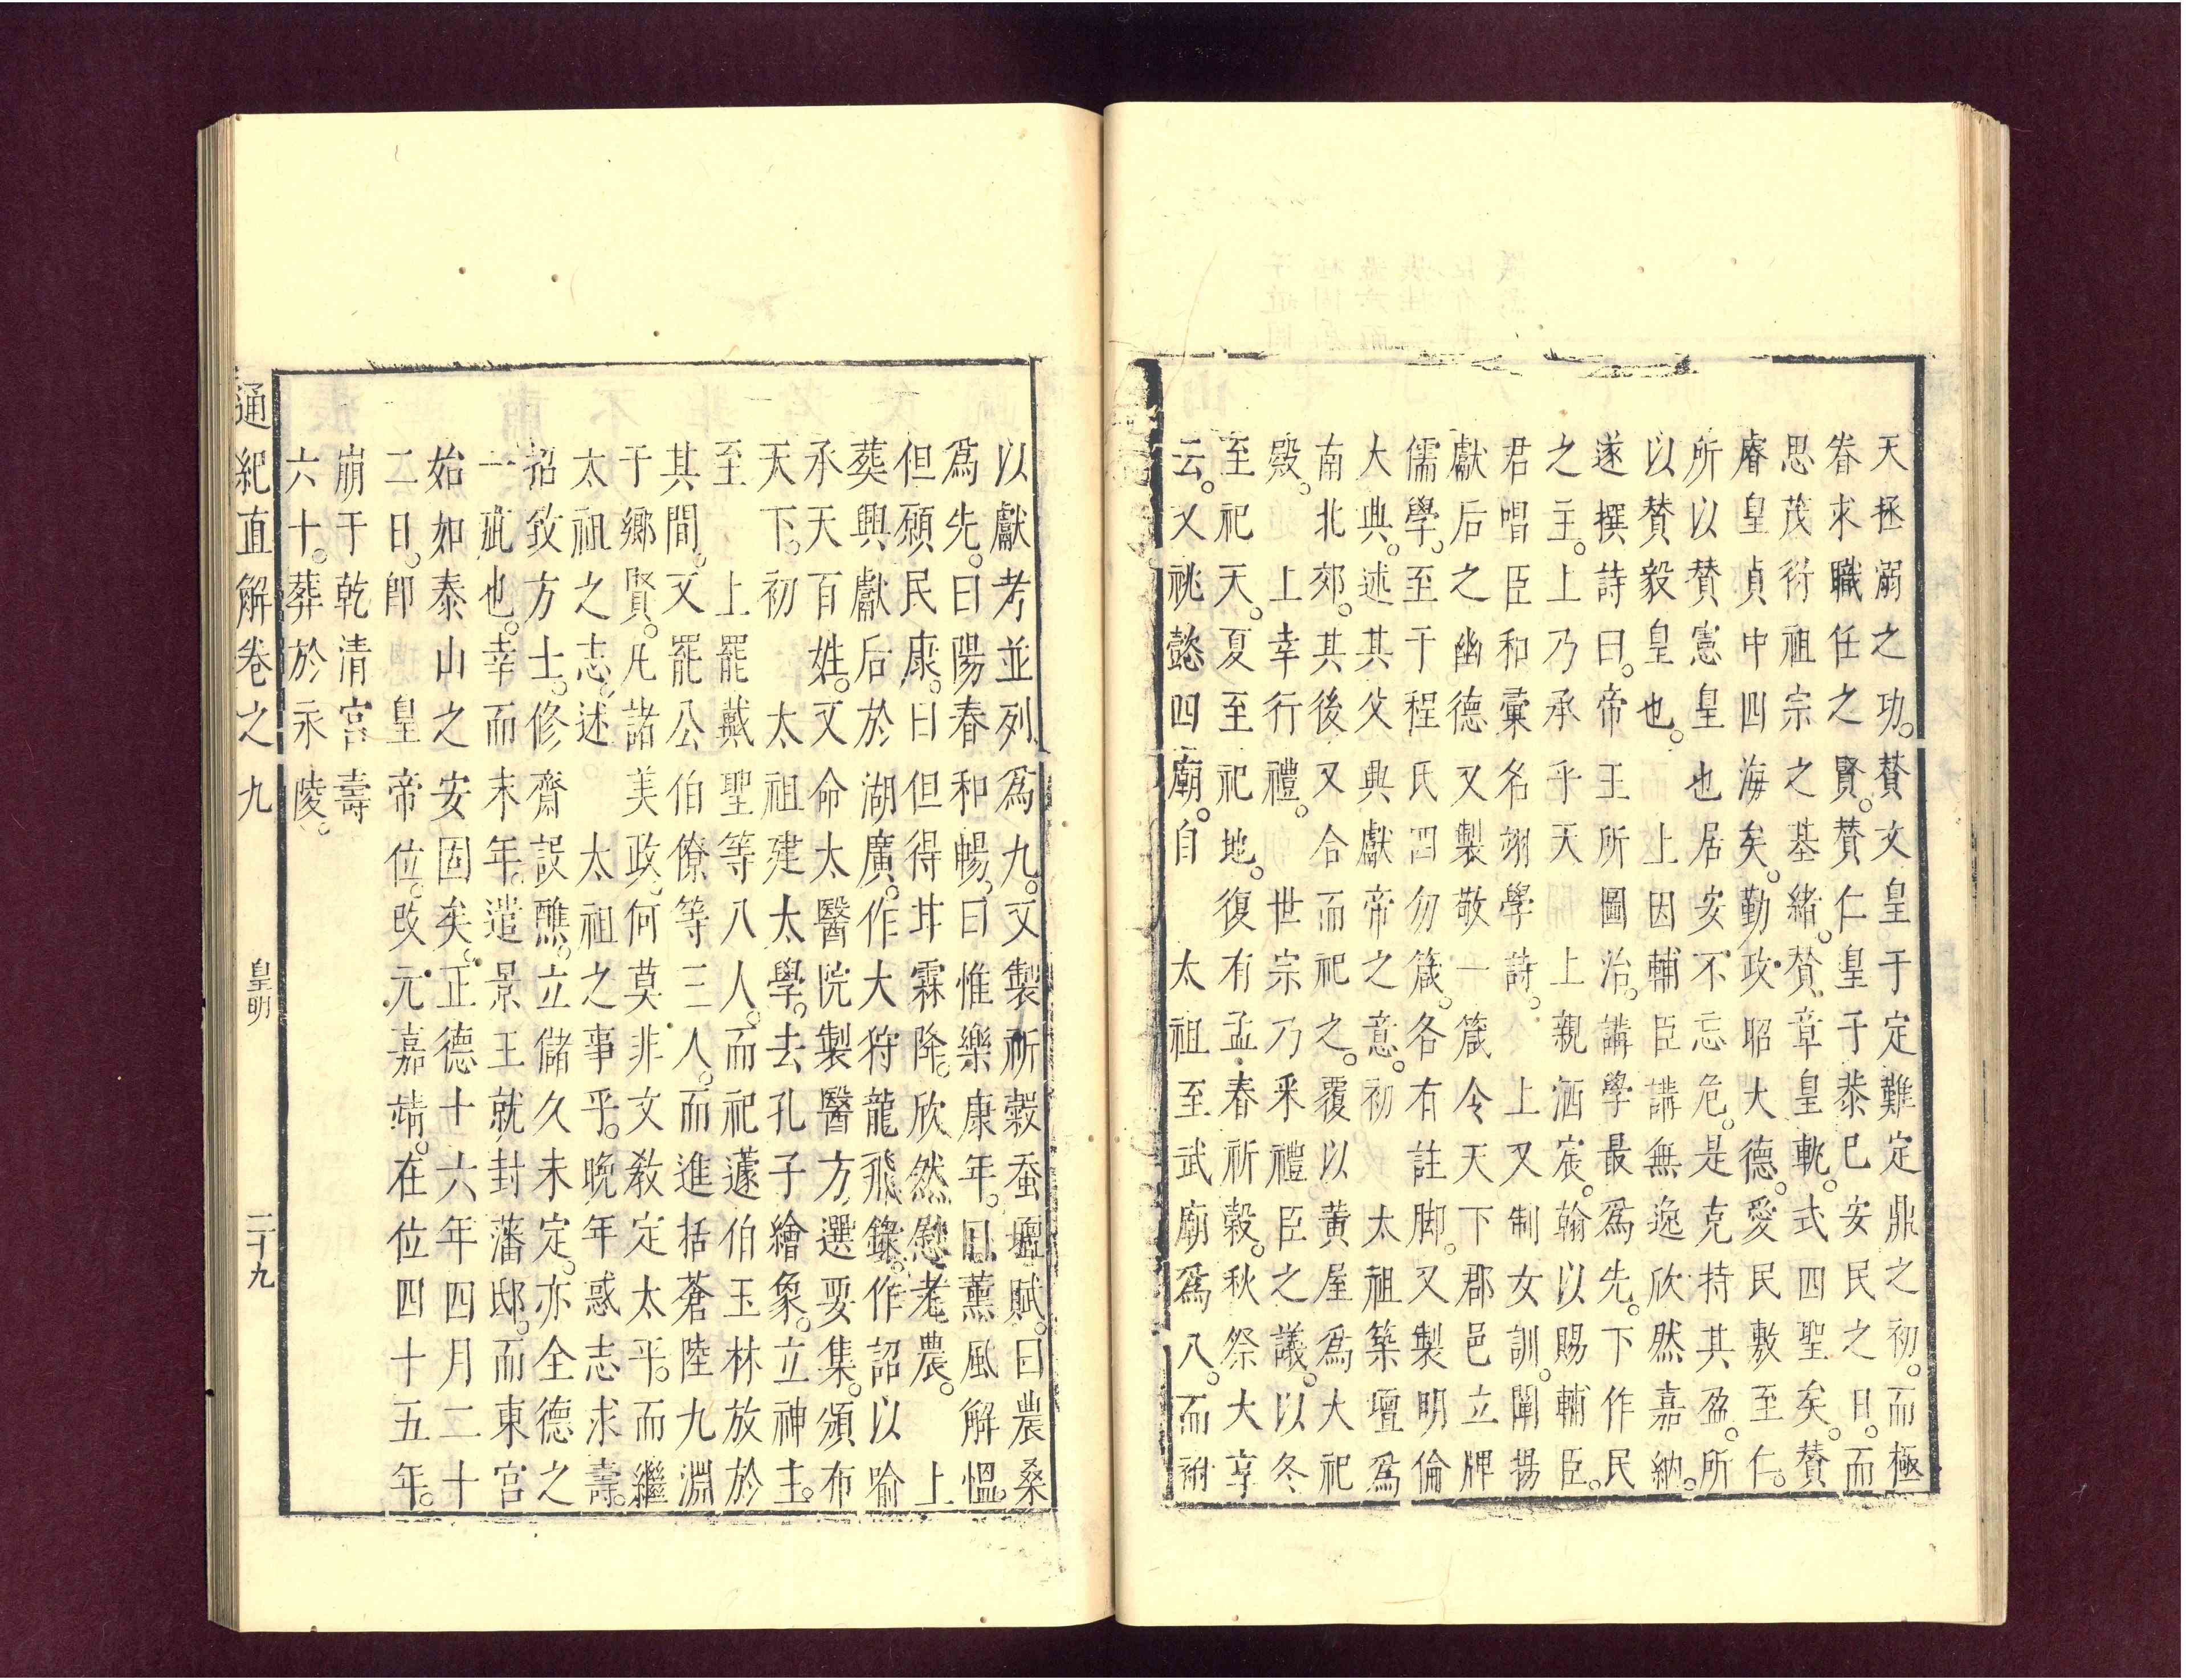 天拯溺之功。贊文皇于定難定鼎之初。而極
眷求職任之賢。贊仁皇于恭巳安民之日。而
思茂衍祖宗之基緒。贊章皇軌。式四聖矣。贊
睿皇貞中四海矣。勤政昭大德。愛民敷至仁。
所以贊憲皇也居安不忘危。是克持其盈。所
以贊毅皇也。 上因輔臣講無逸欣然嘉納。
遂撰詩曰。帝王所圖治。講學最爲先。下作民
之主。上乃承乎天 上親洒宸翰以賜輔臣。
君唱臣和彙名翊學詩。 上又制女訓。闡揚
獻后之幽德又製敬一箴令天下郡邑立牌
儒學。至于程氏四勿箴。各有註脚。又製明倫
大典。述其父興獻帝之意。初 太祖築壇爲
南北郊。其後又合而祀之。覆以黄屋爲大祀
殿。 上幸行禮。 世宗乃釆禮臣之議。以冬
至祀天。夏至祀地。復有孟春祈穀。秋祭大享
云。又祧懿四廟。自 太祖至武廟爲八。而祔
以獻考並列爲九。又製祈穀蚕壇賦。曰農桑
爲先。曰陽春和暢。曰惟樂康年。曰薰風解慍。
但願民康。曰但得甘霖降。欣然慰老農。 上
葬興獻后於湖廣。作大狩龍飛錄。作詔以喻
承天百姓。又命太醫院製醫方選要集。頒布
天下。初 太祖建太學。去孔子繪象。立神主。
至 上罷戴聖等八人。而祀蘧伯玉林放於
其間。又罷公伯僚等三人。而進括蒼陸九淵
于鄉賢。凡諸美政。何莫非文教定太平。而繼
太祖之志。述 太祖之事乎。晩年惑志求壽。
招致方士。修齋設醮。立儲久未定。亦全德之
一疵也。幸而末年。遣景王就封藩邸。而東宮
始如泰山之安固矣。正德十六年四月二十
二日。卽 皇帝位。改元嘉靖。在位四十五年。
崩于乾清宮壽
六十。葬於永陵。
通紀直解卷之九 皇明 二十九